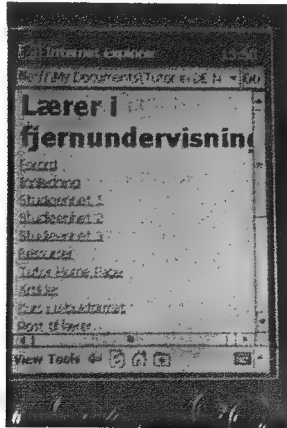 Internet Explorer
file://\My Documents\Tutor in DE N
Lærer i
fjernundervisning
Forord
Innledning
Studieenhet 1
Studieenhet 2
Studieenhet 3
Ressurser
Tutor Home Page
Artikler
Post til lærer
View Tools